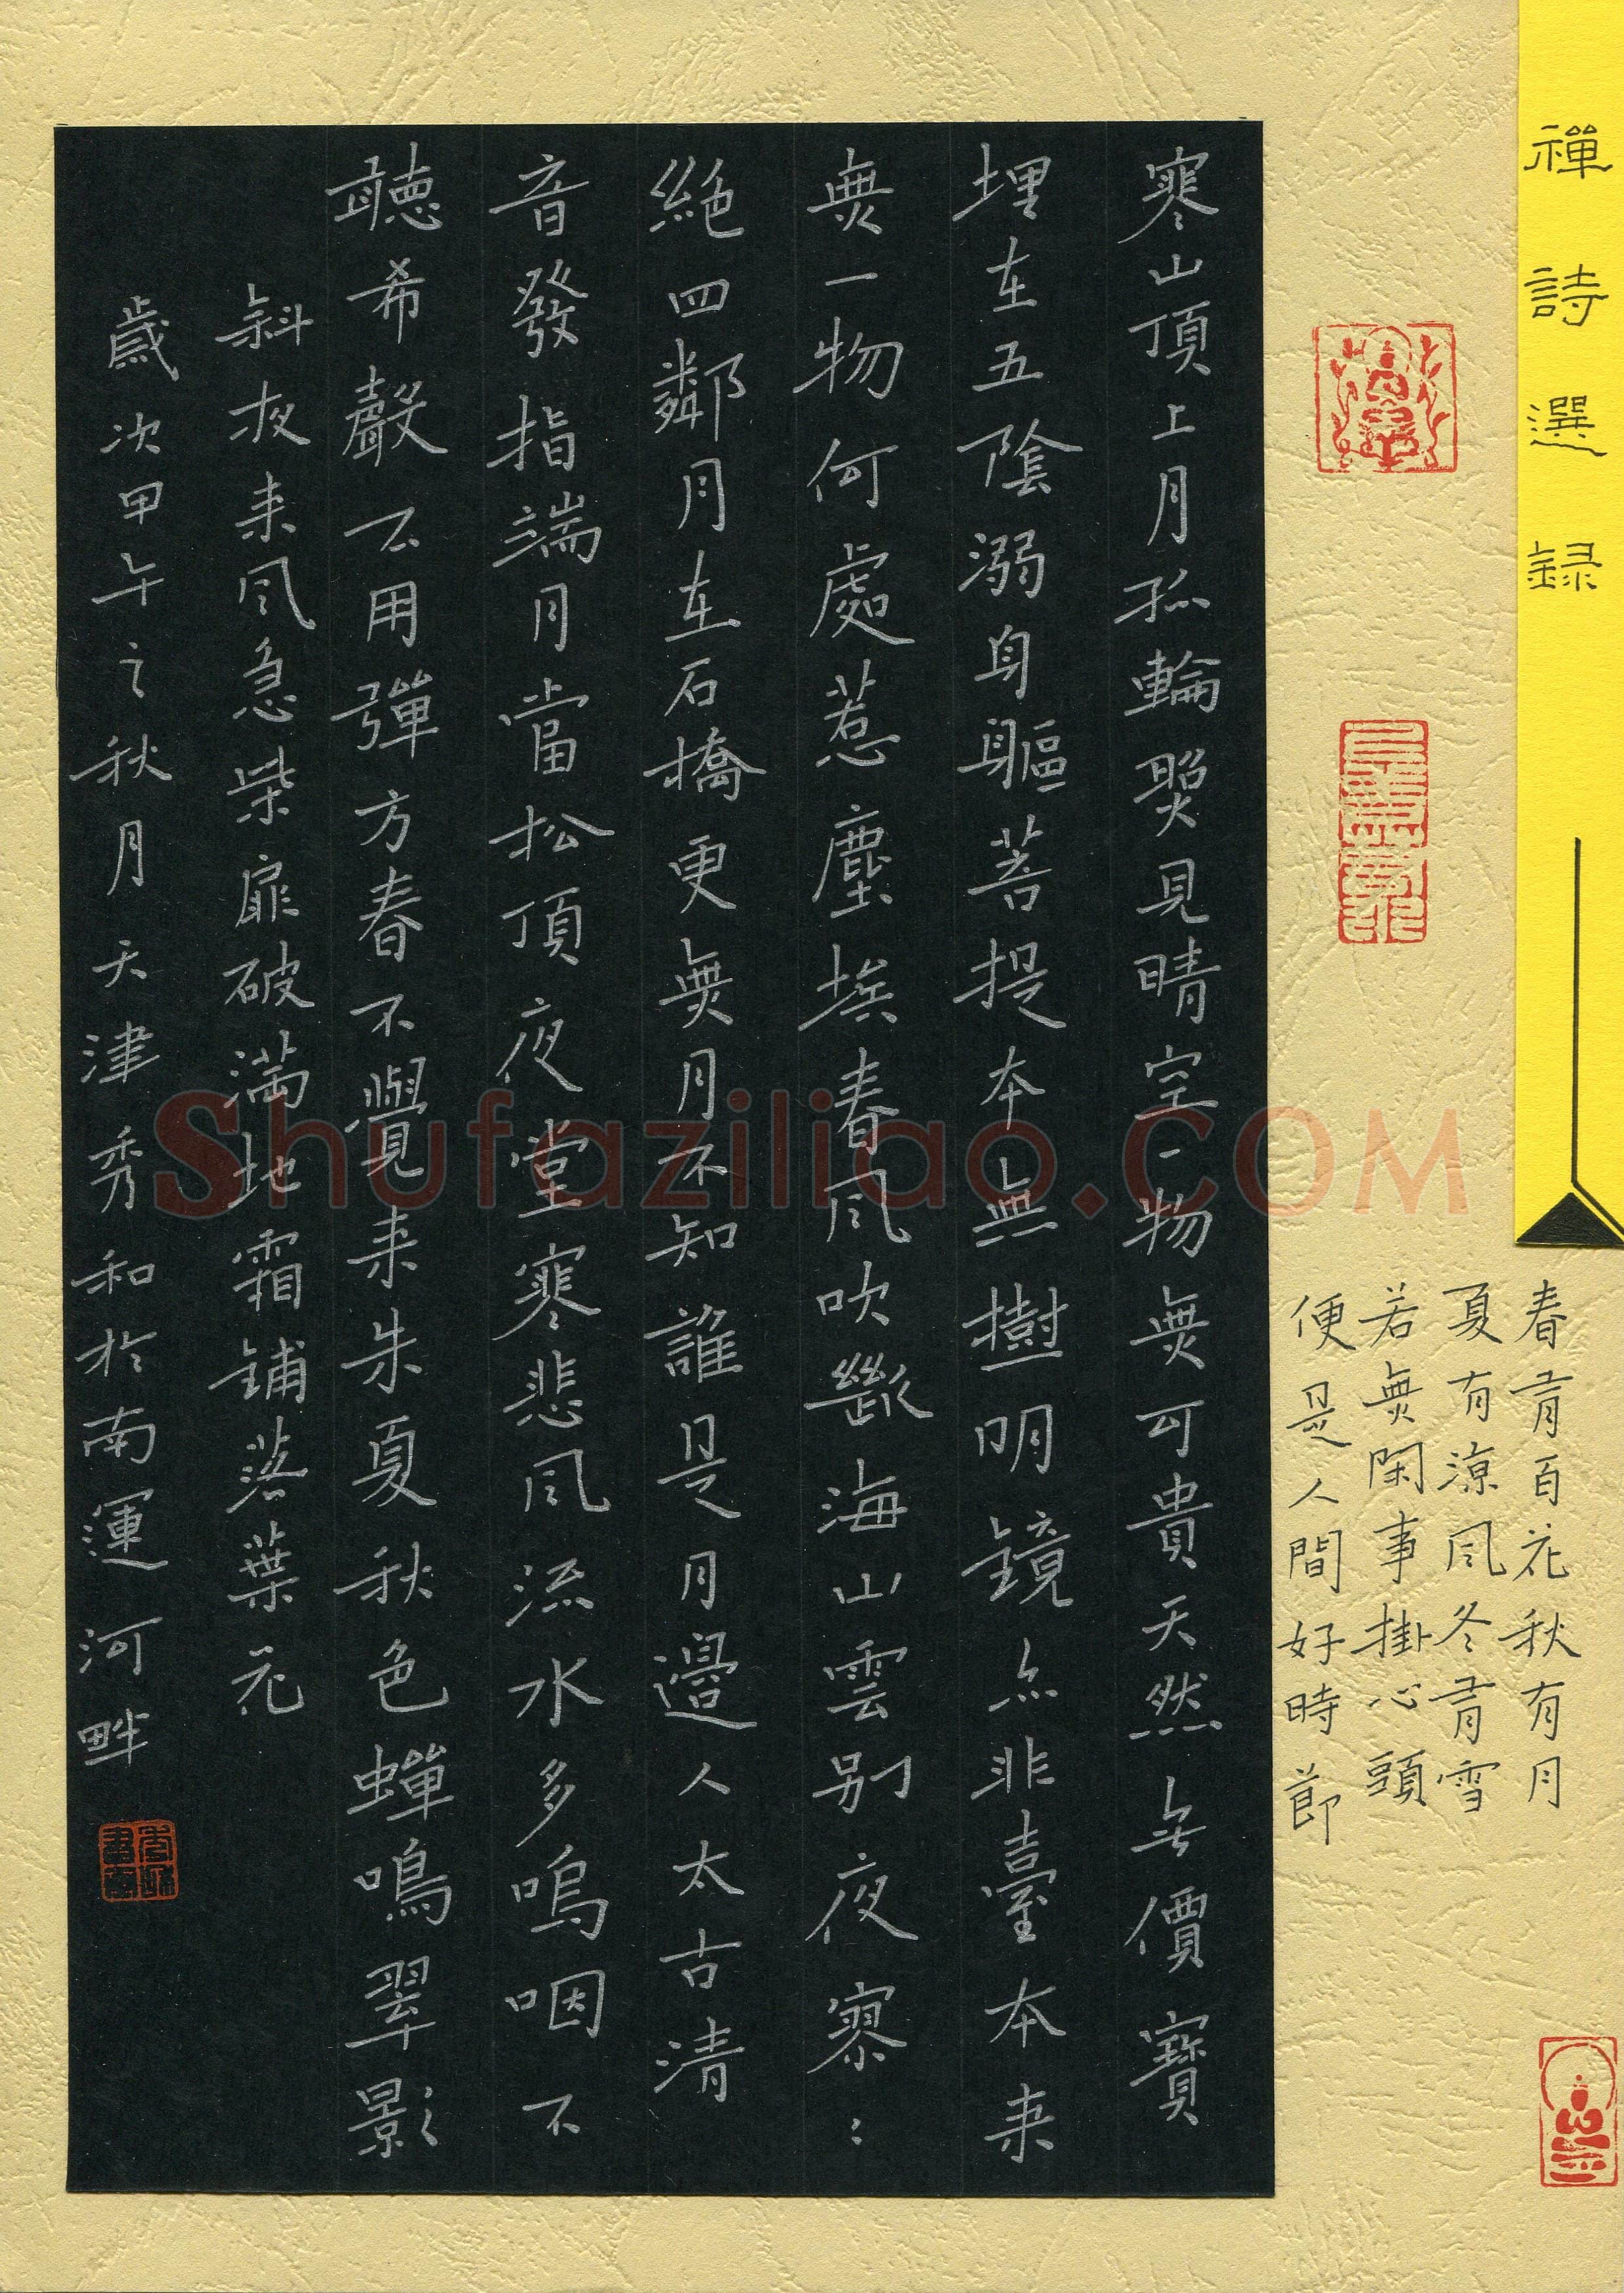 禪詩選録
春有百花秋有月
夏有涼風冬有雪
若無閑事掛心頭
便是人間好時節
寒山頂上月孤輪照見晴空一物無可貴天然無價寶
埋在五陰溺身軀菩提本無樹明鏡亦非臺本來
無一物何處惹塵埃春風吹斷海山雲別夜寥〻
絕四鄰月在石橋更無月不知誰是月邊人太古清
音發指端月當松頂夜堂寒悲風流水多嗚咽不
聽希聲不用彈方春不覺來朱夏秋色蟬鳴翠影
斜夜来風急柴扉破滿地霜鋪落葉花
歲次甲午之秋月天津秀和於南運河畔
Shufaziliao.COM